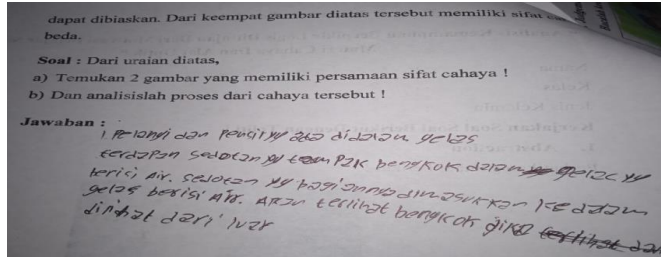 dapat dibiaskan. Dari keempat gambar diatas tersebut memiliki sifat
beda.
Soal : Dari uraian diatas,
a) Temukan 2 gambar yang memiliki persamaan sifat cahaya !
b) Dan analisislah proses dari cahaya tersebut !
Jawaban :
1. Pelangi dan Pencil yg ada didalam gelas
terdapan sedotan yg tampak bengkok dalam gelas yg
terisi Air. sedotan yg bagiannya dimasukkan ke dalam
gelas berisi Air. Akan terlihat bengkok jika
dilihat dari luar